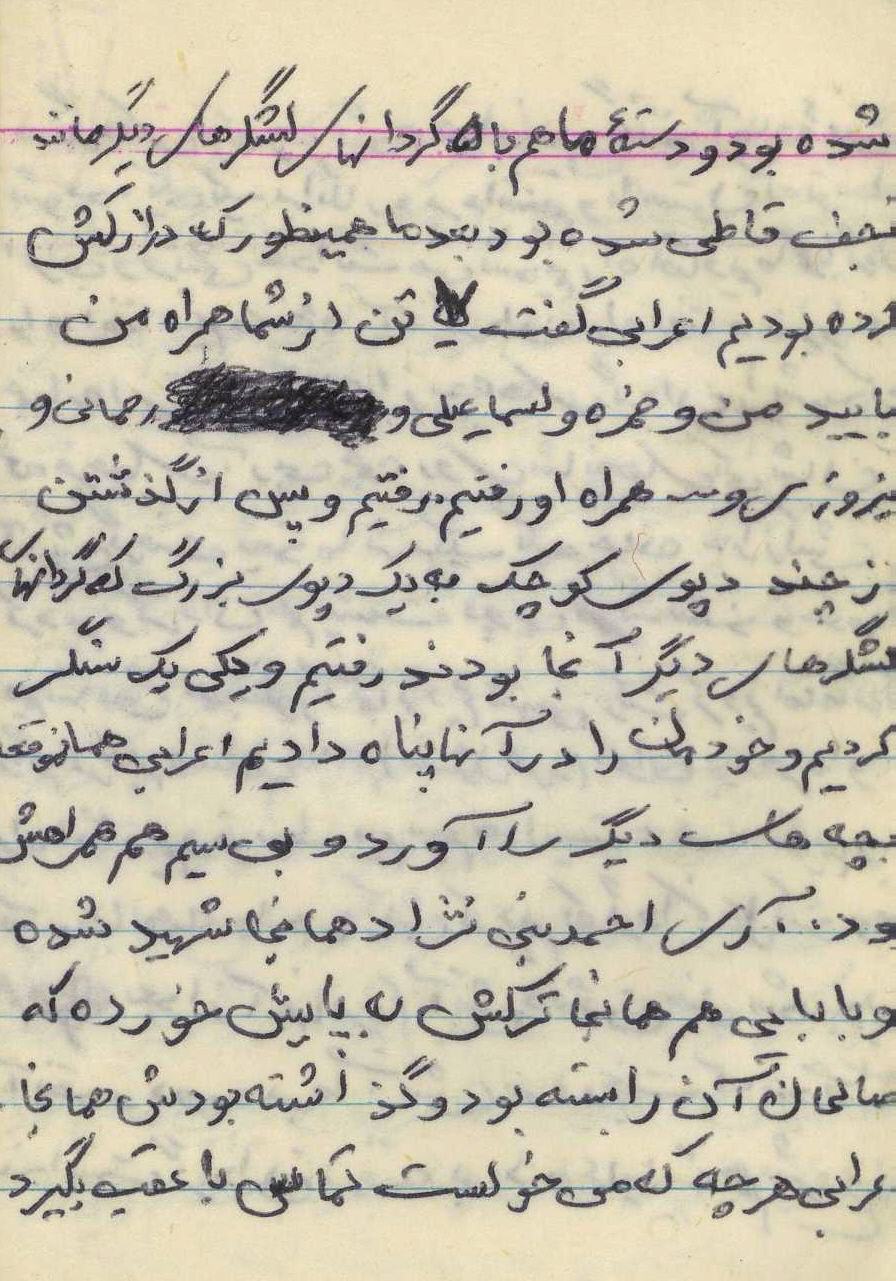 شده بود و دستهٔ ما هم با گردانهای لشگرهای دیگر مانند
نجف قاطی شده بود بعد ما همینطور که دراز کش
کرده بودیم اعرابی گفت تن از شما همراه من
بیایید من و حمزه و اسماعیلی و رحمانی و
همراه او رفتیم. رفتیم و پس از گذشتن
از چند دپوی کوچک به یک دپوی بزرگ که گردانهای
لشگرهای دیگر آنجا بودند رفتیم و یکی یک سنگر
کردیم و خودمان را در آنها پناه دادیم اعرابی همانموقع
بچه های دیگر را آورد و بی سیم هم همراهش
بود.. آری احمد بنی نژاد همانجا شهید شده
و بابایی هم همانجا ترکش به پایش خورده که
آن را بسته بود و گذاشته بودش همانجا
اعرابی هرچه که می خواست تماس با عقب بگیرد